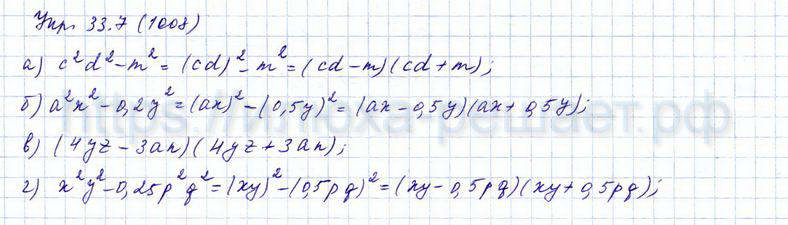 Упр. 33.7 (1008)
а) c²d²-m² = (cd)²-m² = (cd-m)(cd+m);
б) a²x²-0,2y² = (ax)²-(0,5y)² = (ax-0,5y)(ax+0,5y);
в) (4yz-3an)(4yz+3an);
г) x²y²-0,25p²q² = (xy)²-(0,5pq)² = (xy-0,5pq)(xy+0,5pq);